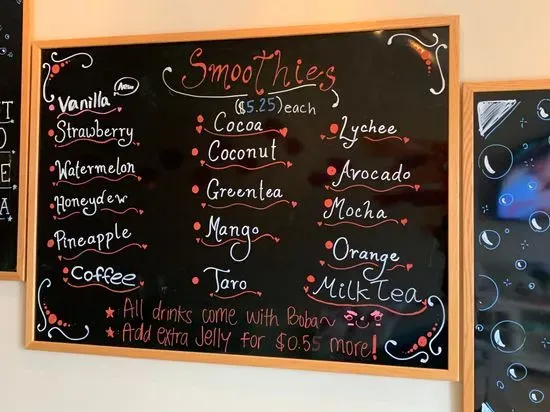 Smoothies
($5.25) each
Vanilla New
Strawberry
Watermelon
Honeydew
Pineapple
Coffee
Cocoa
Coconut
Greentea
Mango
Taro
Lychee
Avocado
Mocha
Orange
Milk Tea
All drinks come with Boba~
Add extra Jelly for $0.55 more!
ET
O
E
A